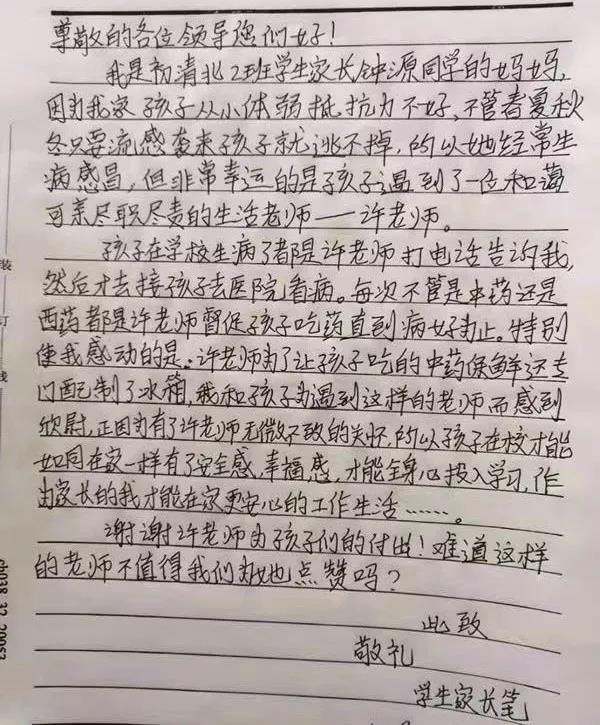 尊敬的各位领导您们好!
我是初清北2班学生家长钟源同学的妈妈,
因为我家孩子从小体弱抵抗力不好,不管春夏秋
冬只要流感袭来孩子就逃不掉,所以她经常生
病感冒,但非常幸运的是孩子遇到了一位和蔼
可亲尽职尽责的生活老师——许老师。
孩子在学校生病了都是许老师打电话告诉我,
然后才去接孩子去医院看病。每次不管是中药还是
西药都是许老师督促孩子吃药直到病好为止。特别
使我感动的是:许老师为了让孩子吃的中药保鲜还专
门配制了冰箱,我和孩子为遇到这样的老师而感到
欣慰,正因为有了许老师无微不致的关怀,所以孩子在校才能
如同在家一样有了安全感,幸福感,才能全身心投入学习,作
为家长的我才能在家更安心的工作生活……。
谢谢许老师为孩子们的付出!难道这样
的老师不值得我们为她点赞吗?
此致
敬礼
学生家长笔
装
订
线